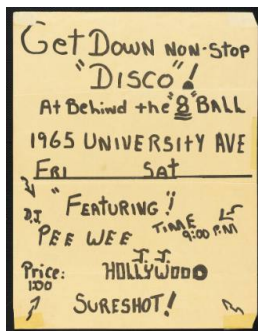 GET DOWN NON-STOP
"DISCO"!
At Behind the "8" BALL
1965 UNIVERSITY AVE
FRI SAT
"FEATURING"!
D.J.
PEE WEE
TIME
9:00 P.M
J.J.
Price: HOLLYWOOD
1.00
SURESHOT!